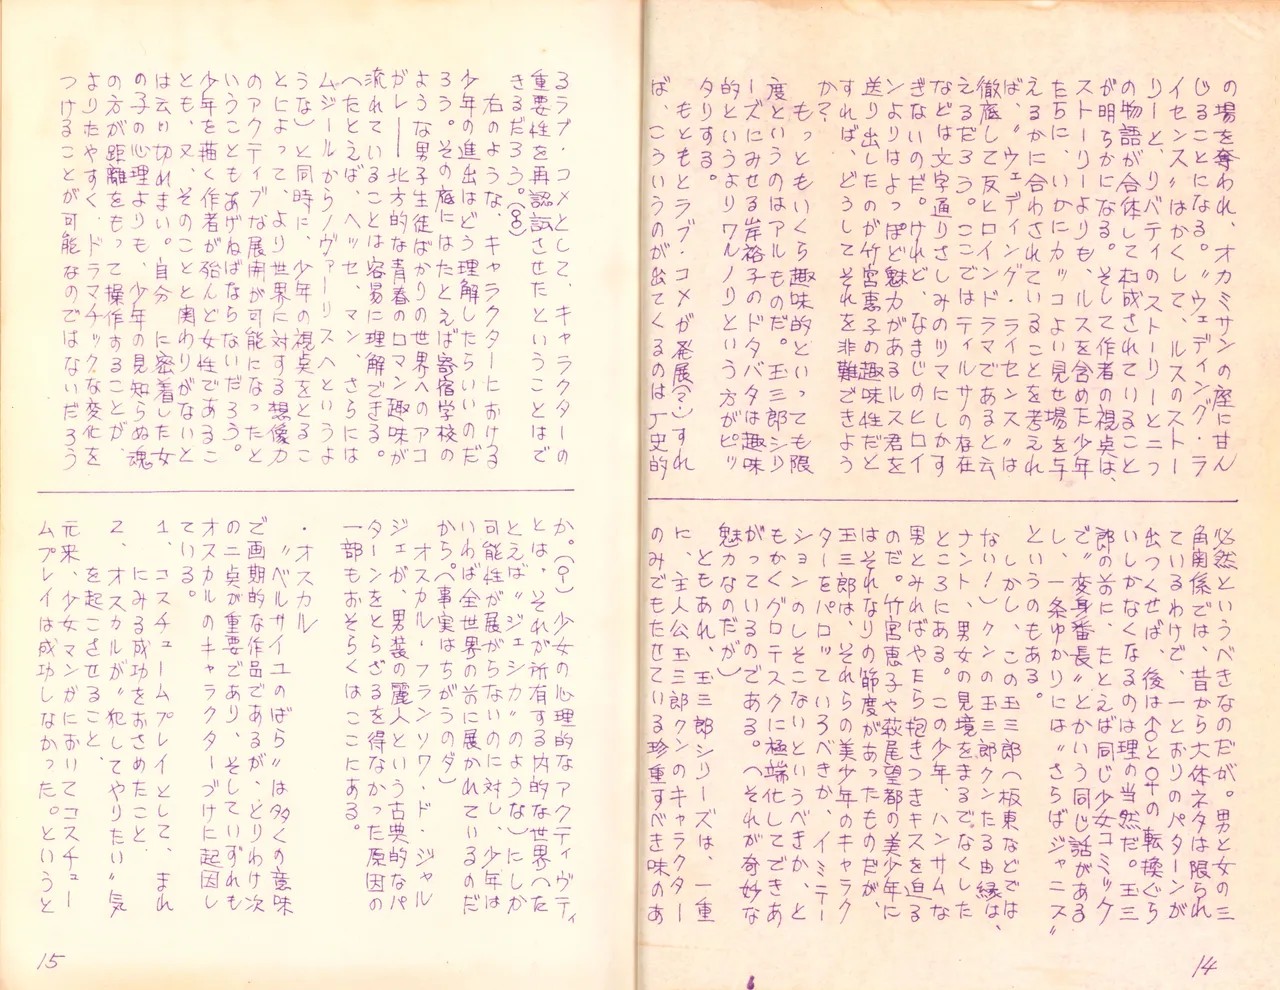 の場を奪われ、オカミサンの座に甘ん
じることになる。〝ウェディング・ラ
イセンス〟はかくして、ルスのストー
リーと、リバティのストーリーとニつ
の物語が合体して構成されていること
が明らかになる。そして作者の視点は、
ストーリーよりも、ルスを含めた少年
たちに、いかにカッコよい見せ場を与
えるかに合わされていることを考えれ
ば、〝ウェディング・ライセンス〟は
徹底して反ヒロインドラマであると云
えるだろう。ここではティルサの存在
などは文字通りさしみのツマにしかす
ぎないのだ。けれど、なまじのヒロイ
ンよりはよっぽど魅力があるルス君を
送り出したのが竹宮恵子の趣味性だと
すれば、どうしてそれを非難できよう
か?
もっともいくら趣味的といっても限
度というのはアルものだ。玉三郎シリ
ーズにみせる岸裕子のドタバタは趣味
的というよりワルノリという方がピッ
タリする。
もともとラブ・コメが発展(?)すれ
ば、こういうのが出てくるのは丁史的
必然というべきなのだが。男と女の三
角関係では、昔から大体ネタは限られ
ているわけで、一とおりのパターンが
出つくせば、後は♂と♀の転換ぐら
いしかなくなるのは理の当然だ。玉三
郎の前に、たとえば同じ少女コミック
で〝変身番長〟とかいう同じ話がある
し、一条ゆかりには〝さらばジャニス〟
というのもある。
しかし、この玉三郎(板東などでは
ない!)クンの玉三郎クンたる由縁は、
ナント、男女の見境をまるでなくした
ところにある。この少年、ハンサムな
男とみればやたら抱きつきキスを迫る
のだ。竹宮恵子や萩尾望都の美少年に
はそれなりの節度があったものだが、
玉三郎は、それらの美少年のキャラク
ターをパロっているべきか、イミテー
ションのしそこないというべきか、と
もかくグロテスクに極端化してできあ
がっているのである。(それが奇妙な
魅力なのだが)
ともあれ、玉三郎シリーズは、一重
に、主人公玉三郎クンのキャラクター
のみでもたせている珍重すべき味のあ
14
るラブ・コメとして、キャラクターの
重要性を再認識させたということはで
きるだろう。(8)
右のような、キャラクターにおける
少年の進出はどう理解したらいいのだ
ろう。その底にはたとえば寄宿学校の
ような男子生徒ばかりの世界へのアコ
ガレ——北方的な青春のロマン趣味が
流れていることは容易に理解できる。
(たとえば、ヘッセ、マン、さらには
ムジールからノヴァーリスへというよ
うな)と同時に、少年の視点をとるこ
とによって、より世界に対する想像力
のアクティブな展開が可能になったと
いうこともあげねばならないだろう。
少年を描く作者が殆んど女性であるこ
とも、又、そのことと関わりがないと
は云い切れまい。自分に密着した女
の子の心理よりも、少年の見知らぬ魂
の方が距離をもって操作することが、
よりたやすく、ドラマチックな変化を
つけることが可能なのではないだろう
か。(9)少女の心理的なアクティヴティ
とは、それが所有する内的な世界へ(た
とえば〝ジェシカ〟のような)にしか
可能性が展がらないのに対し、少年は
いわば全世界の前に展かれているのだ
から。(事実はちがうのダ)
オスカル・フランソワ・ド・ジャル
ジェが、男装の麗人という古典的なパ
ターンをとらざるを得なかった原因の
一部もおそらくはここにある。
・オスカル
〝ベルサイユのばら〟は多くの意味
で画期的な作品であるが、とりわけ次
の二点が重要であり、そしていずれも
オスカルのキャラクターづけに起因し
ている。
1、コスチュームプレイとして、まれ
にみる成功をおさめたこと、
2、オスカルが〝犯してやりたい〟気
を起こさせること、
元来、少女マンガにおいてコスチュー
ムプレイは成功しなかった。というと
15